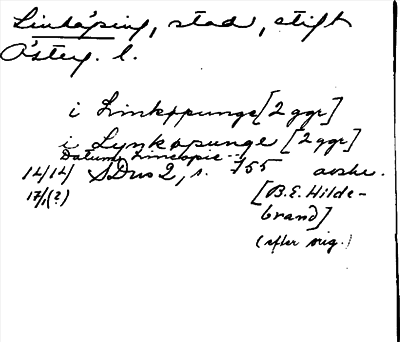 Linköping, stad, stift
Österg. l.
i Linkøpunge [2 ggr]
i Lynkøpunge [2 ggr]
Datum Lincopie
1414 SDns 2, s. 755 avskr.
17/1 (?) [B.E. Hilde-
brand]
(efter orig.)